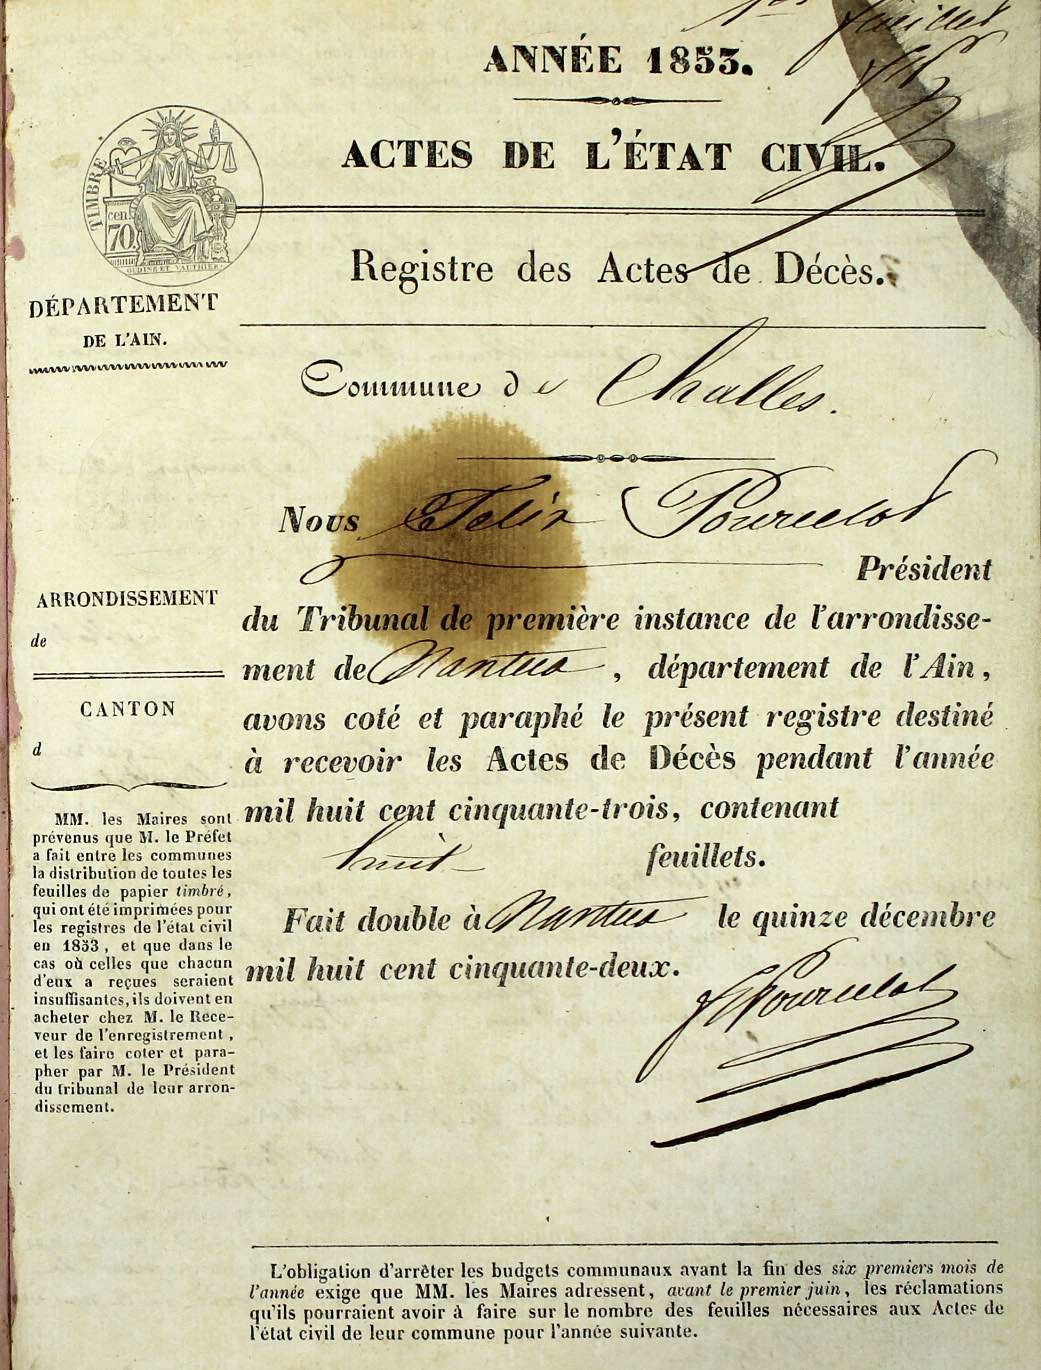 1er feuillet
ANNÉE 1853.
ACTES DE L'ÉTAT CIVIL.
TIMBRE
cen.
70
OUDINE ET VAUTHIER
Registre des Actes de Décès.
DÉPARTEMENT
DE L'AIN.
Commune de Challes.
Nous Félix Pourcelot
Président
du Tribunal de première instance de l'arrondisse-
ment de Nantua, département de l'Ain,
avons coté et paraphé le présent registre destiné
à recevoir les Actes de Décès pendant l'année
mil huit cent cinquante-trois, contenant
huit feuillets.
Fait double à Nantua le quinze décembre
mil huit cent cinquante-deux.
F Pourcelot
ARRONDISSEMENT
de
CANTON
d
MM. les Maires sont
prévenus que M. le Préfet
a fait entre les communes
la distribution de toutes les
feuilles de papier timbré,
qui ont été imprimées pour
les registres de l'état civil
en 1853, et que dans le
cas où celles que chacun
d'eux a reçues seraient
insuffisantes, ils doivent en
acheter chez M. le Rece-
veur de l'enregistrement,
et les faire coter et para-
pher par M. le Président
du tribunal de leur arron-
dissement.
L'obligation d'arrêter les budgets communaux avant la fin des six premiers mois de
l'année exige que MM. les Maires adressent, avant le premier juin, les réclamations
qu'ils pourraient avoir à faire sur le nombre des feuilles nécessaires aux Actes de
l'état civil de leur commune pour l'année suivante.